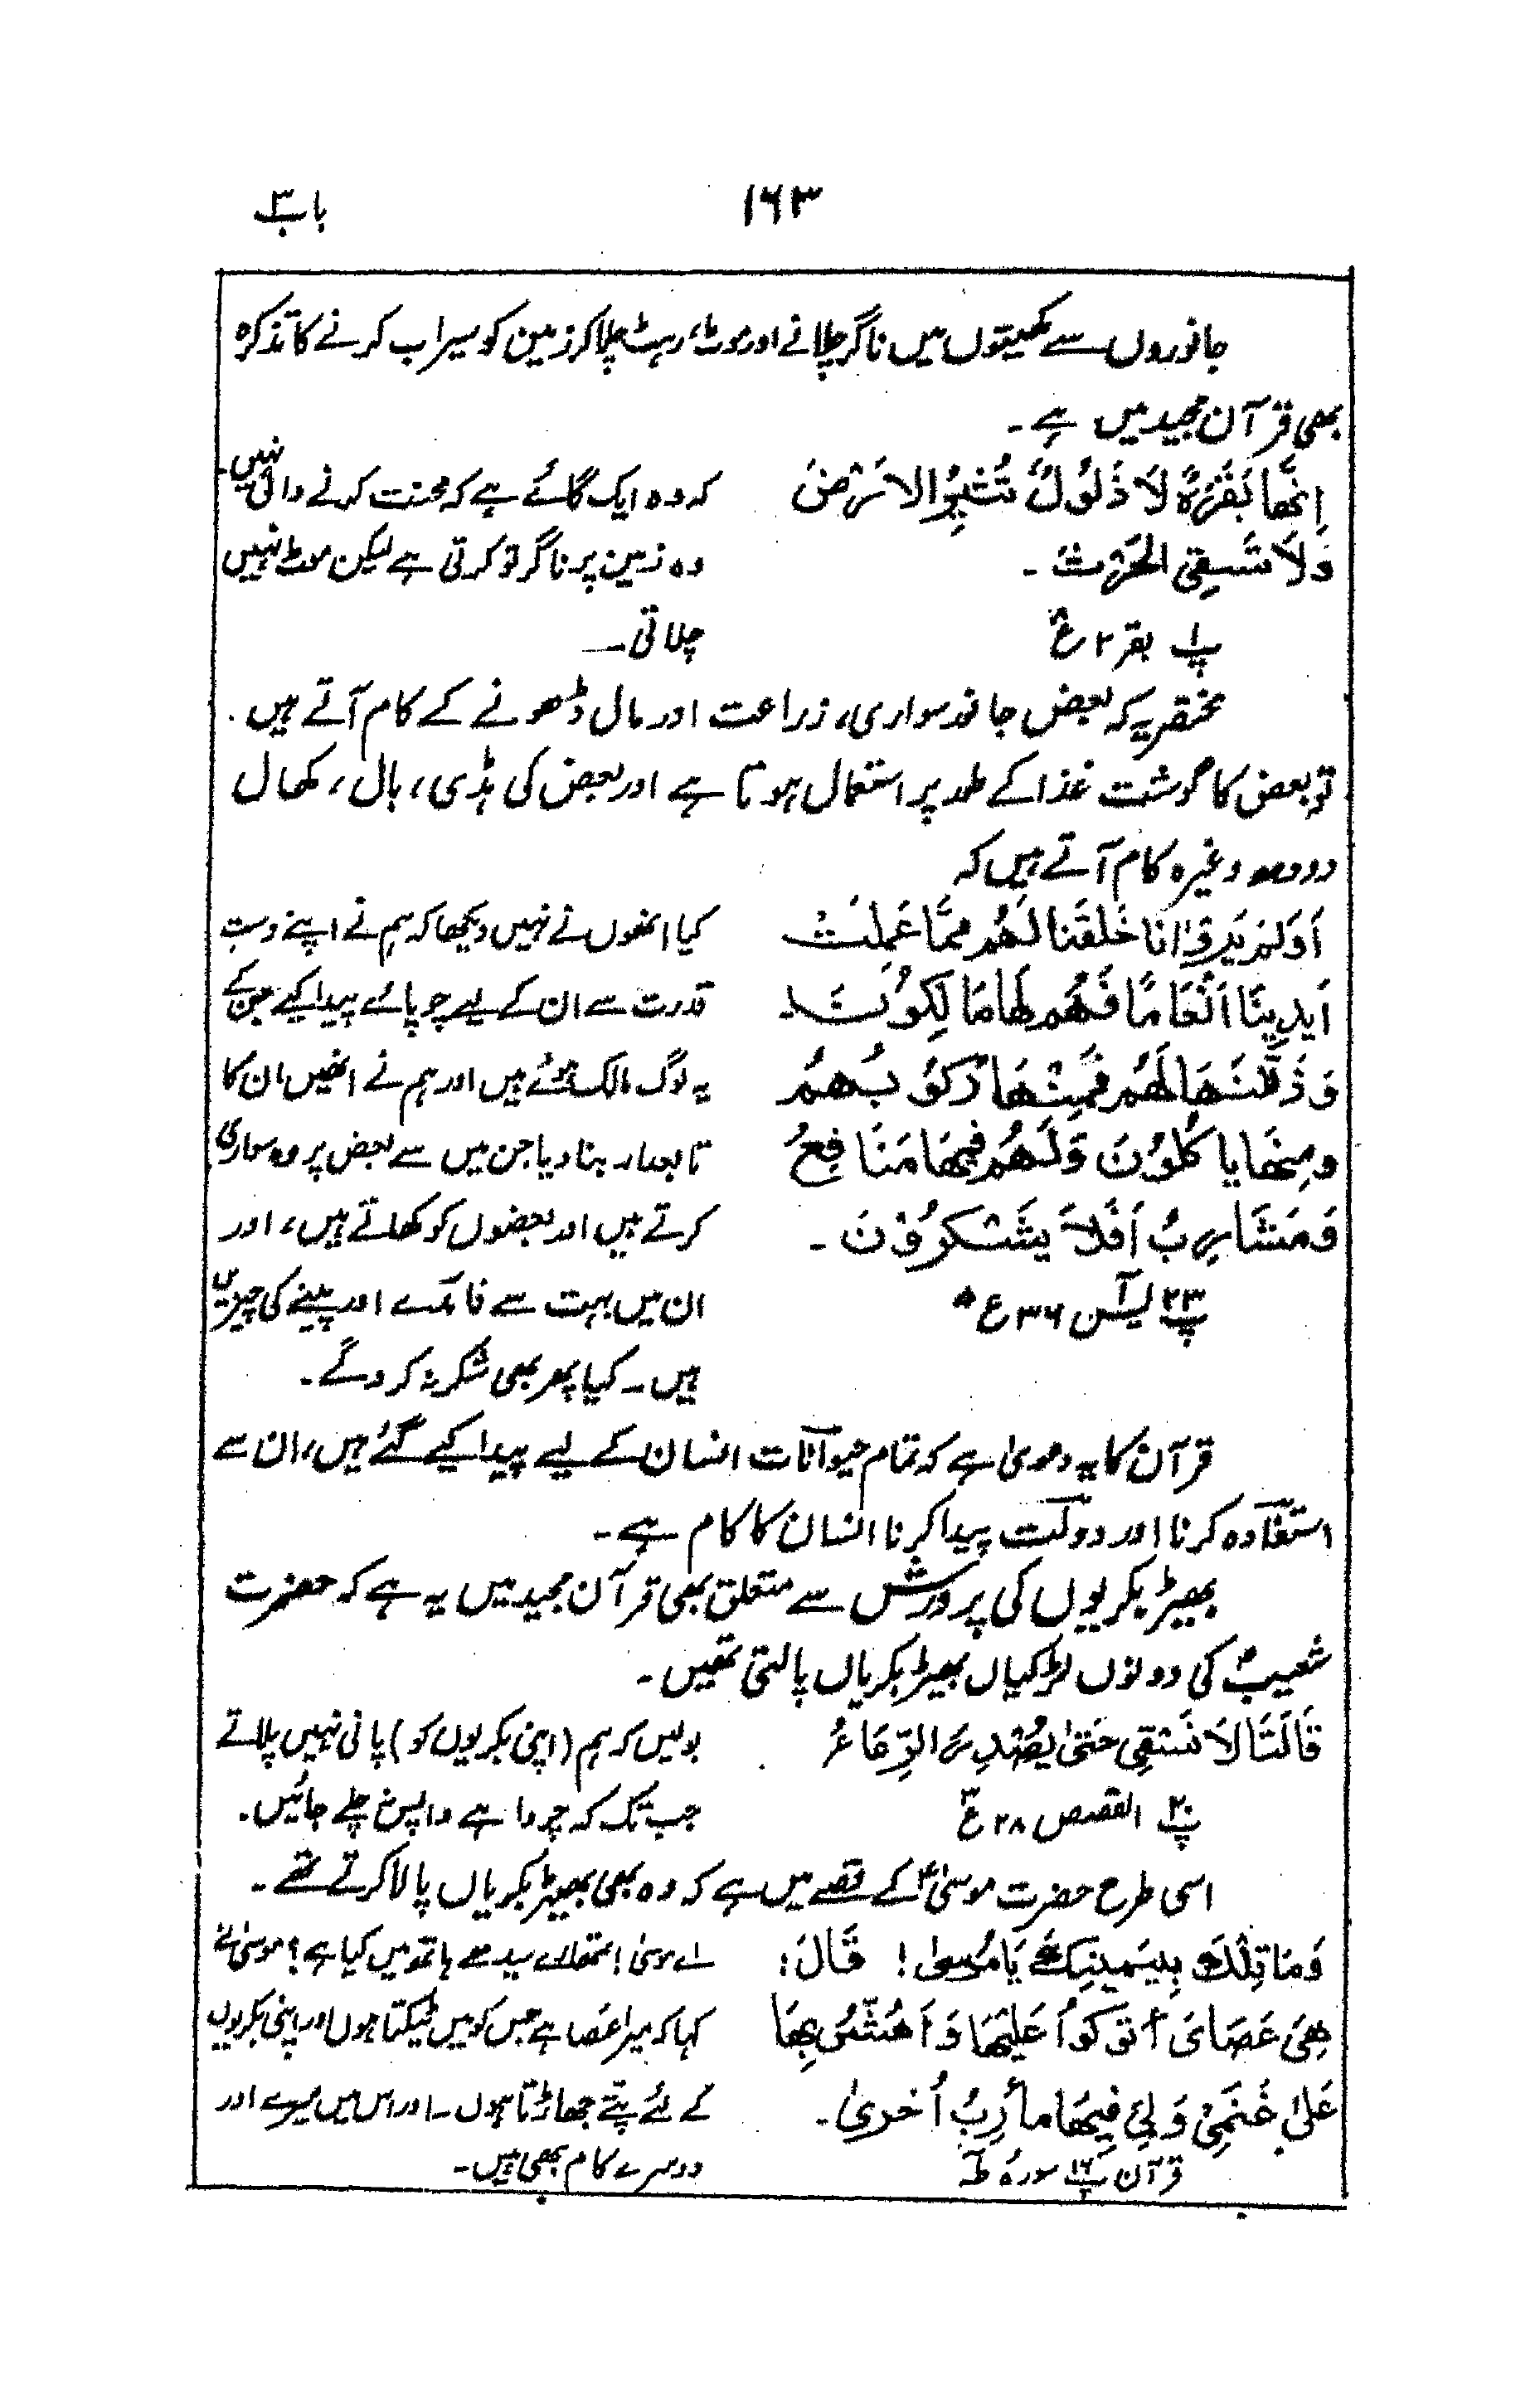 ۱۶۳
باب ۳
جانوروں سے کھیتوں میں ناگر چلانے اور موٹ، رہٹ چلا کر زمین کو سیراب کرنے کا تذکرہ
بھی قرآن مجید میں ہے۔
اِنَّھَا بَقَرَۃٌ لَا ذَلُوْلٌ تُثِیْرُ الاَرْضَ
وَلَا تَسْقِی الحَرْثَ۔
پ۱ بقر ۲ ع۸
کہ وہ ایک گائے ہے کہ محنت کرنے والی نہیں۔
وہ زمین پر ناگر تو کرتی ہے لیکن موٹ نہیں
چلاتی۔
مختصر یہ کہ بعض جانور سواری، زراعت اور مال ڈھونے کے کام آتے ہیں۔
تو بعض کا گوشت غذا کے طور پر استعمال ہوتا ہے اور بعض کی ہڈی، بال، کھال
دودھ وغیرہ کام آتے ہیں کہ
اَوَلَمْ یَرَوْا اَنَّا خَلَقْنَا لَھُمْ مِمَّا عَمِلَتْ
اَیدِیْنَا اَنْعَامًا فَھُمْ لَھَا مَالِکُوْنَ۔
وَ ذَلَّلْنٰھَا لَھُمْ فَمِنْھَا رَکُوْبُھُمْ
وِمِنْھَا یَاکُلُوْنَ وَلَھُمْ فِیْھَا مَنَافِعُ
وَمَشَارِبُ اَفَلَا یَشْکُرُوْنَ۔
پ۲۳ یٰسٓ ۳۶ ع ۵
کیا انھوں نے نہیں دیکھا کہ ہم نے اپنے دست
قدرت سے ان کے لیے چوپائے پیدا کیے جن کے
یہ لوگ مالک ہوئے ہیں اور ہم نے انھیں ان کا
تابعدار بنا دیا جن میں سے بعض پر وہ سواری
کرتے ہیں اور بعضوں کو کھاتے ہیں، اور
ان میں بہت سے فائدے اور پینے کی چیزیں
ہیں۔ کیا پھر بھی شکر نہ کروگے۔
قرآن کا یہ دعویٰ ہے کہ تمام حیوانات انسان کے لیے پیدا کیے گئے ہیں، ان سے
استفادہ کرنا اور دولت پیدا کرنا انسان کا کام ہے۔
بھیڑ بکریوں کی پرورش سے متعلق بھی قرآن مجید میں یہ ہے کہ حضرت
شعیبؑ کی دونوں لڑکیاں بھیڑ بکریاں پالتی تھیں۔
قَالَتَا لَا نَسْقِی حَتیّٰ یُصْدِرَ الرِّعَاءُ
پ۲۰ القصص ۲۸ ع
بولیں کہ ہم (اپنی بکریوں کو) پانی نہیں پلاتے
جب تک کہ چرواہے واپس نہ چلے جائیں۔
اسی طرح حضرت موسیٰؑ کے قصے میں ہے کہ وہ بھی بھیڑ بکریاں پالا کرتے تھے۔
وَمَا تِلْکَ بِیَمِیْنِکَ یَامُوسیٰ! قَالَ:
ھِیَ عَصَایَ اَتَوَکَّوُاْ عَلَیْھَا وَ اَھُشُّ بِھَا
عَلیٰ غَنَمِیْ وَلِیَ فِیْھَا مأرِبُ اُخریٰ۔
قرآن پ۱۶ سورہ طٰہٰ
اے موسیٰ! تمھارے سیدھے ہاتھ میں کیا ہے؟ موسیٰ نے
کہا کہ میرا عصا ہے جس کو میں ٹیکتا ہوں اور اپنی بکریوں
کے لئے پتے جھاڑتا ہوں۔ اور اس میں میرے اور
دوسرے کام بھی ہیں۔